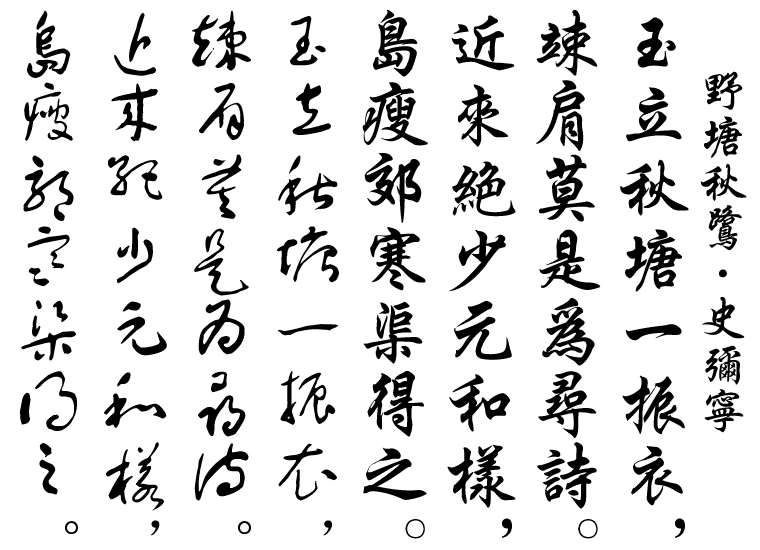 野塘秋鷺・史彌寧
玉立秋塘一振衣，
竦肩莫是爲尋詩。
近來絕少元和樣，
島瘦郊寒渠得之。
玉立秋塘一振衣，
竦肩莫是为尋诗。
近來絕少元和樣，
島瘦郊寒渠得之。